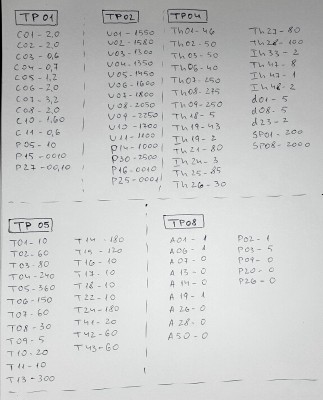 TP01
C01-2,0
C02-2,0
C03-0,6
C04-0,7
C05-1,2
C06-2,0
C07-3,2
C08-2,0
C10-1,60
C11-0,6
P05-10
P15-0010
P27-00,10
TP02
U01-1550
U02-1580
U03-1300
U04-1350
U05-1450
U06-1600
U07-1800
U08-2050
U09-2250
U10-1700
U11-1100
P14-1000
P30-2500
P16-0010
P25-0001
TP04
Th01-46
Th02-50
Th03-50
Th06-40
Th07-250
Th08-275
Th09-250
Th18-5
Th19-43
Ih19-2
Th21-80
Ih24-3
Th25-85
Th26-30
Th27-80
Th28-100
Ih33-2
Th47-8
Ih47-1
Ih48-2
d01-5
d08-5
d23-2
SP01-200
SP08-2000
TP05
T01-10
T02-60
T03-80
T04-240
T05-360
T06-150
T07-60
T08-30
T09-5
T10-20
T11-10
T13-300
T14-180
T15-120
T16-10
T17-10
T18-10
T22-10
T24-180
T41-20
T42-60
T43-60
TP08
A01-1
A06-1
A07-0
A13-0
A14-0
A19-1
A26-0
A28-0
A50-0
P02-1
P03-5
P09-0
P20-0
P26-0